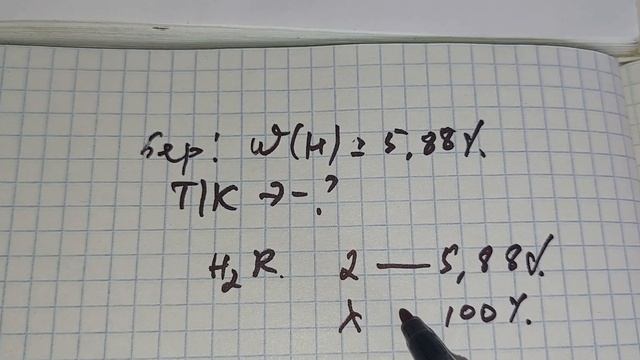 Бер: W(H) = 5,88%.
Т/К Э - ?
H₂R. 2 — 5,88%.
x 100%.